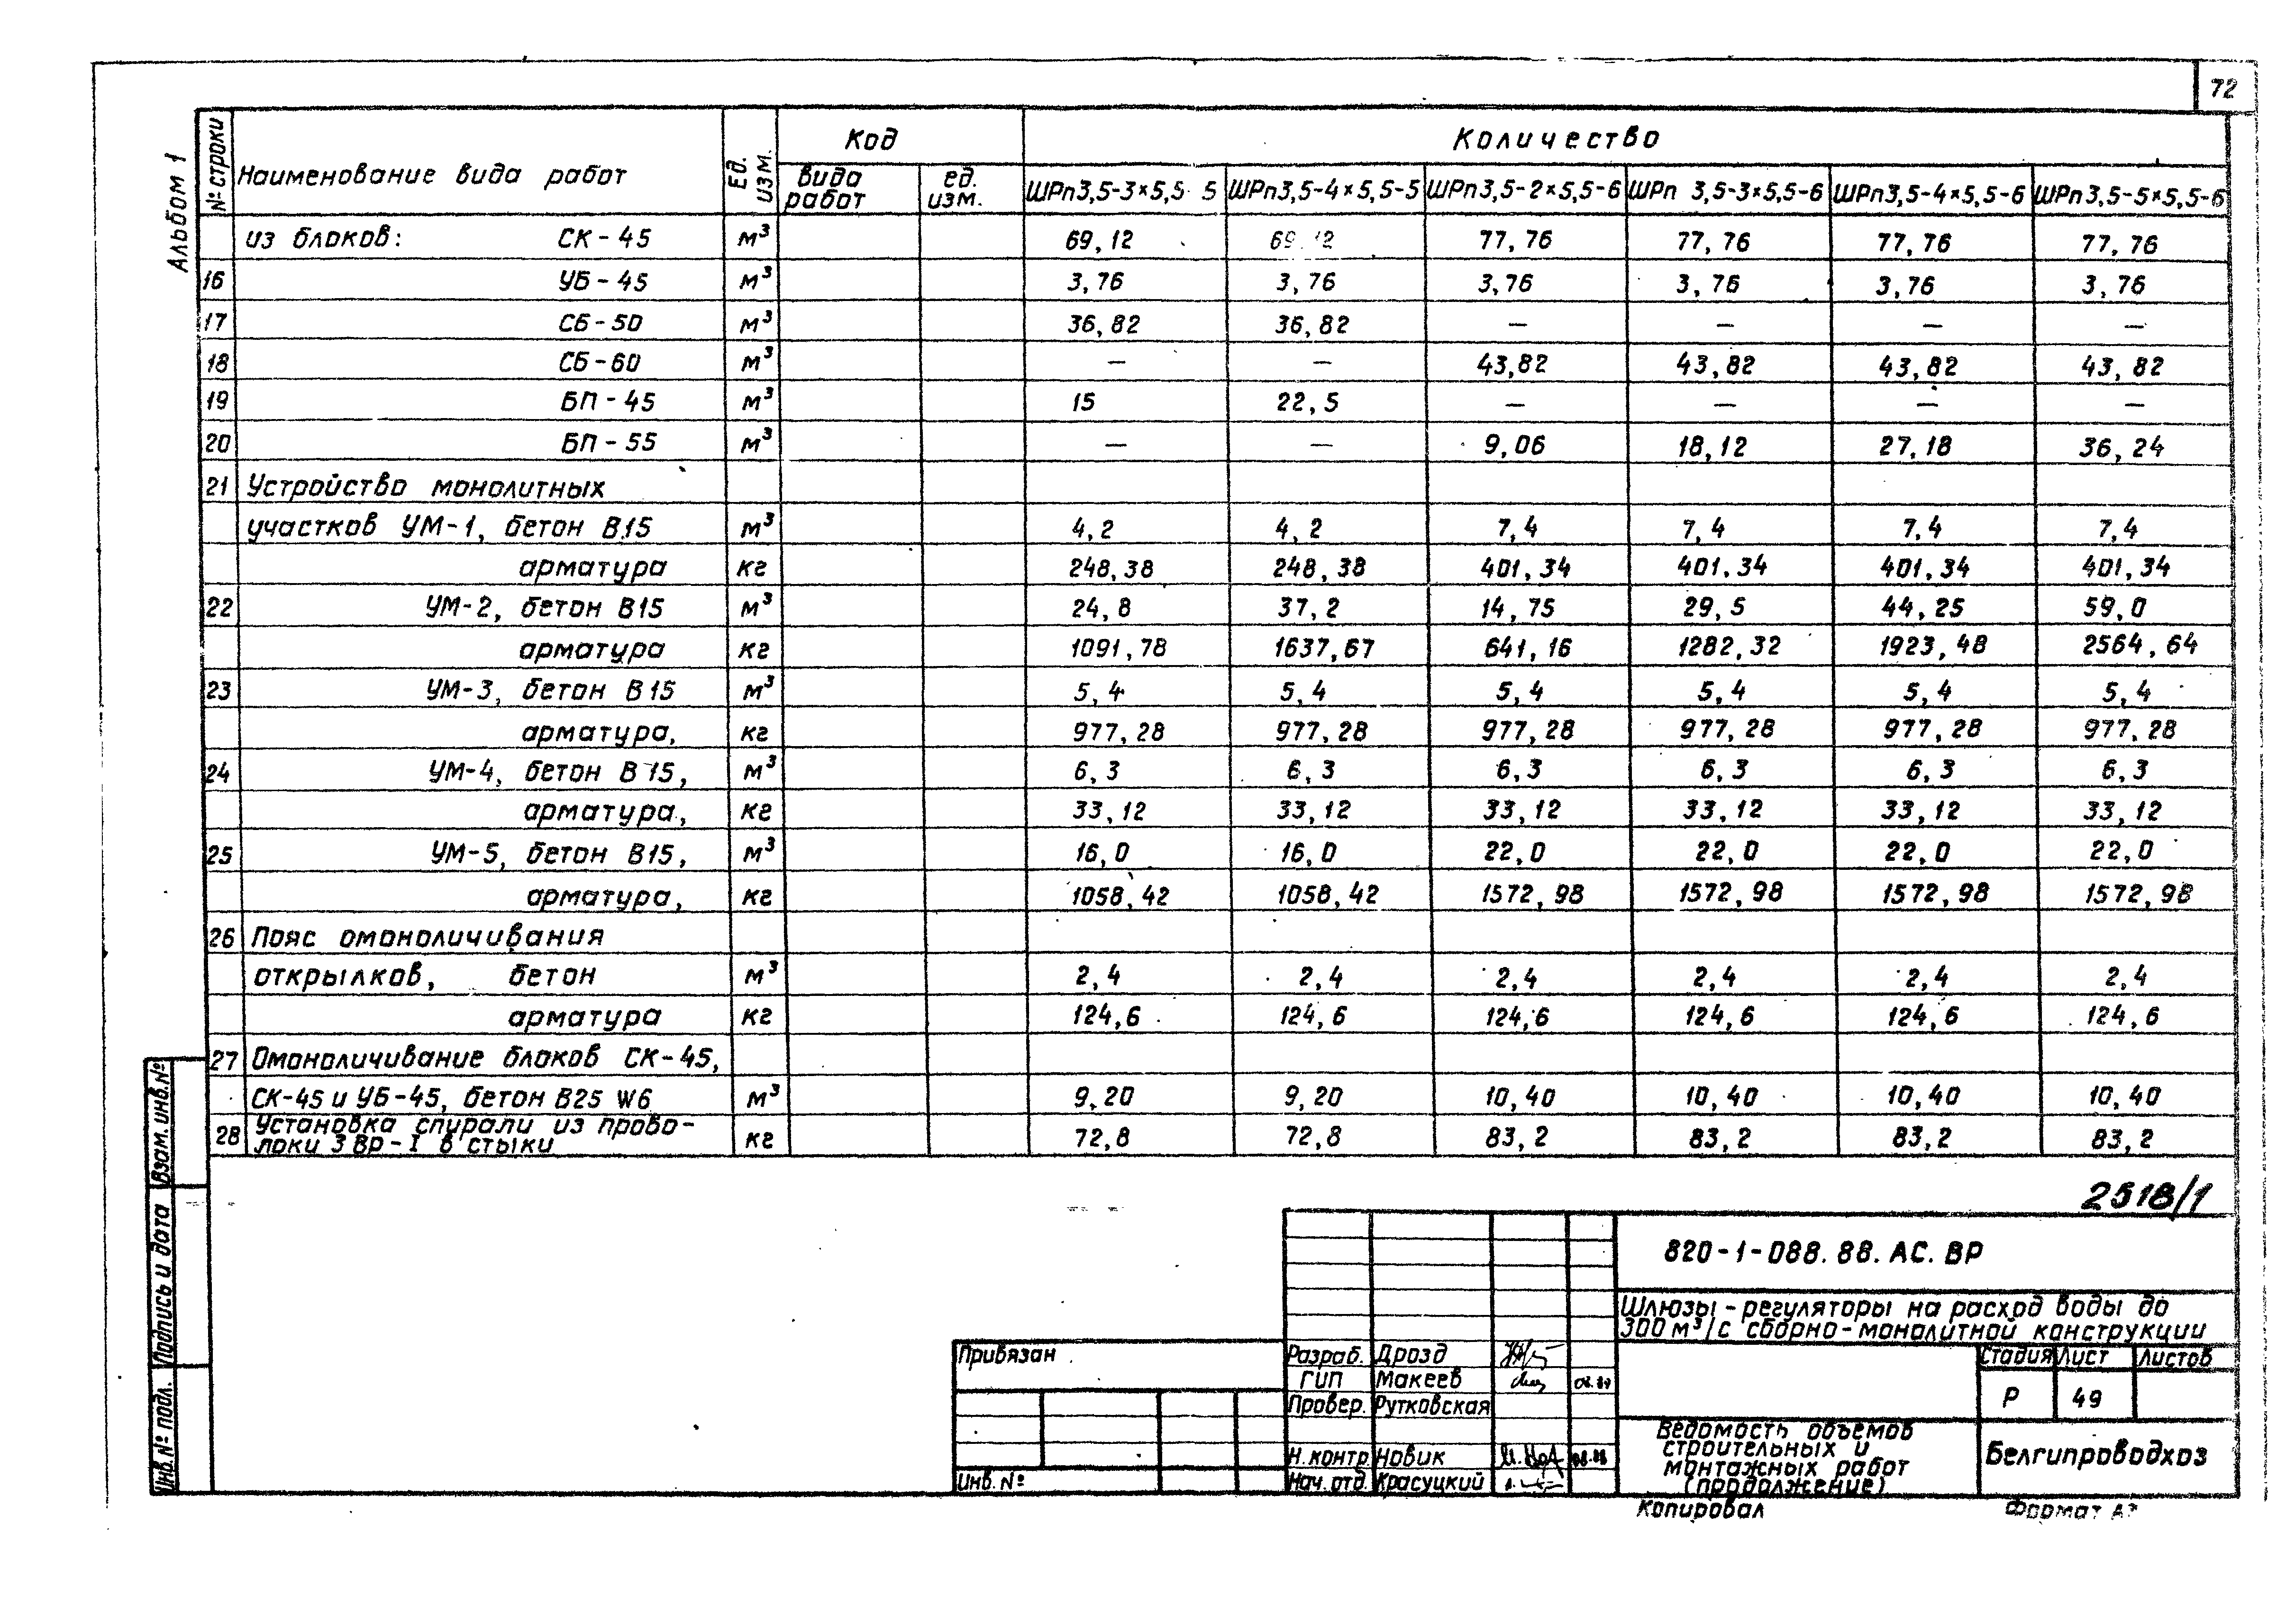 72
Альбом 1
№ строки | Наименование вида работ | Ед. изм. | Код | Количество
вида работ | ед. изм. | ШРп3,5-3×5,5 5 | ШРп3,5-4×5,5-5 | ШРп3,5-2×5,5-6 | ШРп 3,5-3×5,5-6 | ШРп3,5-4×5,5-6 | ШРп3,5-5×5,5-6
из блоков: СК-45 м³ 69,12 69,12 77,76 77,76 77,76 77,76
16 УБ-45 м³ 3,76 3,76 3,76 3,76 3,76 3,76
17 СБ-50 м³ 36,82 36,82 — — — —
18 СБ-60 м³ — — 43,82 43,82 43,82 43,82
19 БП-45 м³ 15 22,5 — — — —
20 БП-55 м³ — — 9,06 18,12 27,18 36,24
21 Устройство монолитных
участков УМ-1, бетон В15 м³ 4,2 4,2 7,4 7,4 7,4 7,4
арматура кг 248,38 248,38 401,34 401,34 401,34 401,34
22 УМ-2, бетон В15 м³ 24,8 37,2 14,75 29,5 44,25 59,0
арматура кг 1091,78 1637,67 641,16 1282,32 1923,48 2564,64
23 УМ-3, бетон В15 м³ 5,4 5,4 5,4 5,4 5,4 5,4
арматура, кг 977,28 977,28 977,28 977,28 977,28 977,28
24 УМ-4, бетон В15, м³ 6,3 6,3 6,3 6,3 6,3 6,3
арматура, кг 33,12 33,12 33,12 33,12 33,12 33,12
25 УМ-5, бетон В15, м³ 16,0 16,0 22,0 22,0 22,0 22,0
арматура, кг 1058,42 1058,42 1572,98 1572,98 1572,98 1572,98
26 Пояс омоноличивания
открылков, бетон м³ 2,4 2,4 2,4 2,4 2,4 2,4
арматура кг 124,6 124,6 124,6 124,6 124,6 124,6
27 Омоноличивание блоков СК-45,
СК-45 и УБ-45, бетон В25 W6 м³ 9,20 9,20 10,40 10,40 10,40 10,40
28 Установка спирали из прово-
локи 3Вр-I в стыки кг 72,8 72,8 83,2 83,2 83,2 83,2
Взам. инв.№
Подпись и дата
Инв.№ подл.
2518/1
820-1-088.88.АС.ВР
Шлюзы-регуляторы на расход воды до
300 м³/с сборно-монолитной конструкции
Привязан
Инв. №
Разраб. Дрозд
ГИП Макеев
Провер. Рутковская
Н. контр. Новик 08.88
Нач. отд. Красуцкий
Стадия Лист Листов
Р 49
Ведомость объемов
строительных и
монтажных работ
(продолжение)
Белгипроводхоз
Копировал
Формат А3